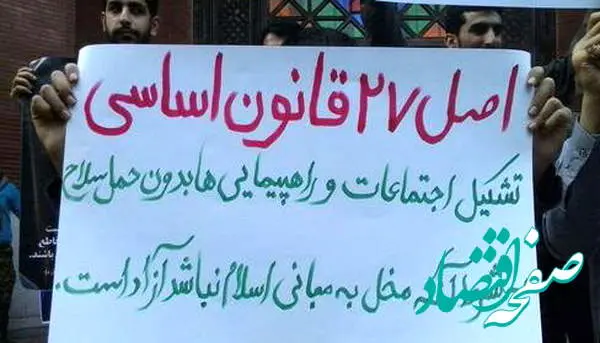 اصل ۲۷ قانون اساسی
تشکیل اجتماعات و راهپیمایی ها بدون حمل سلاح
مخل به مبانی اسلام نباشد آزاد است.
صفحه اقتصاد
ست
قاطع
باشند.